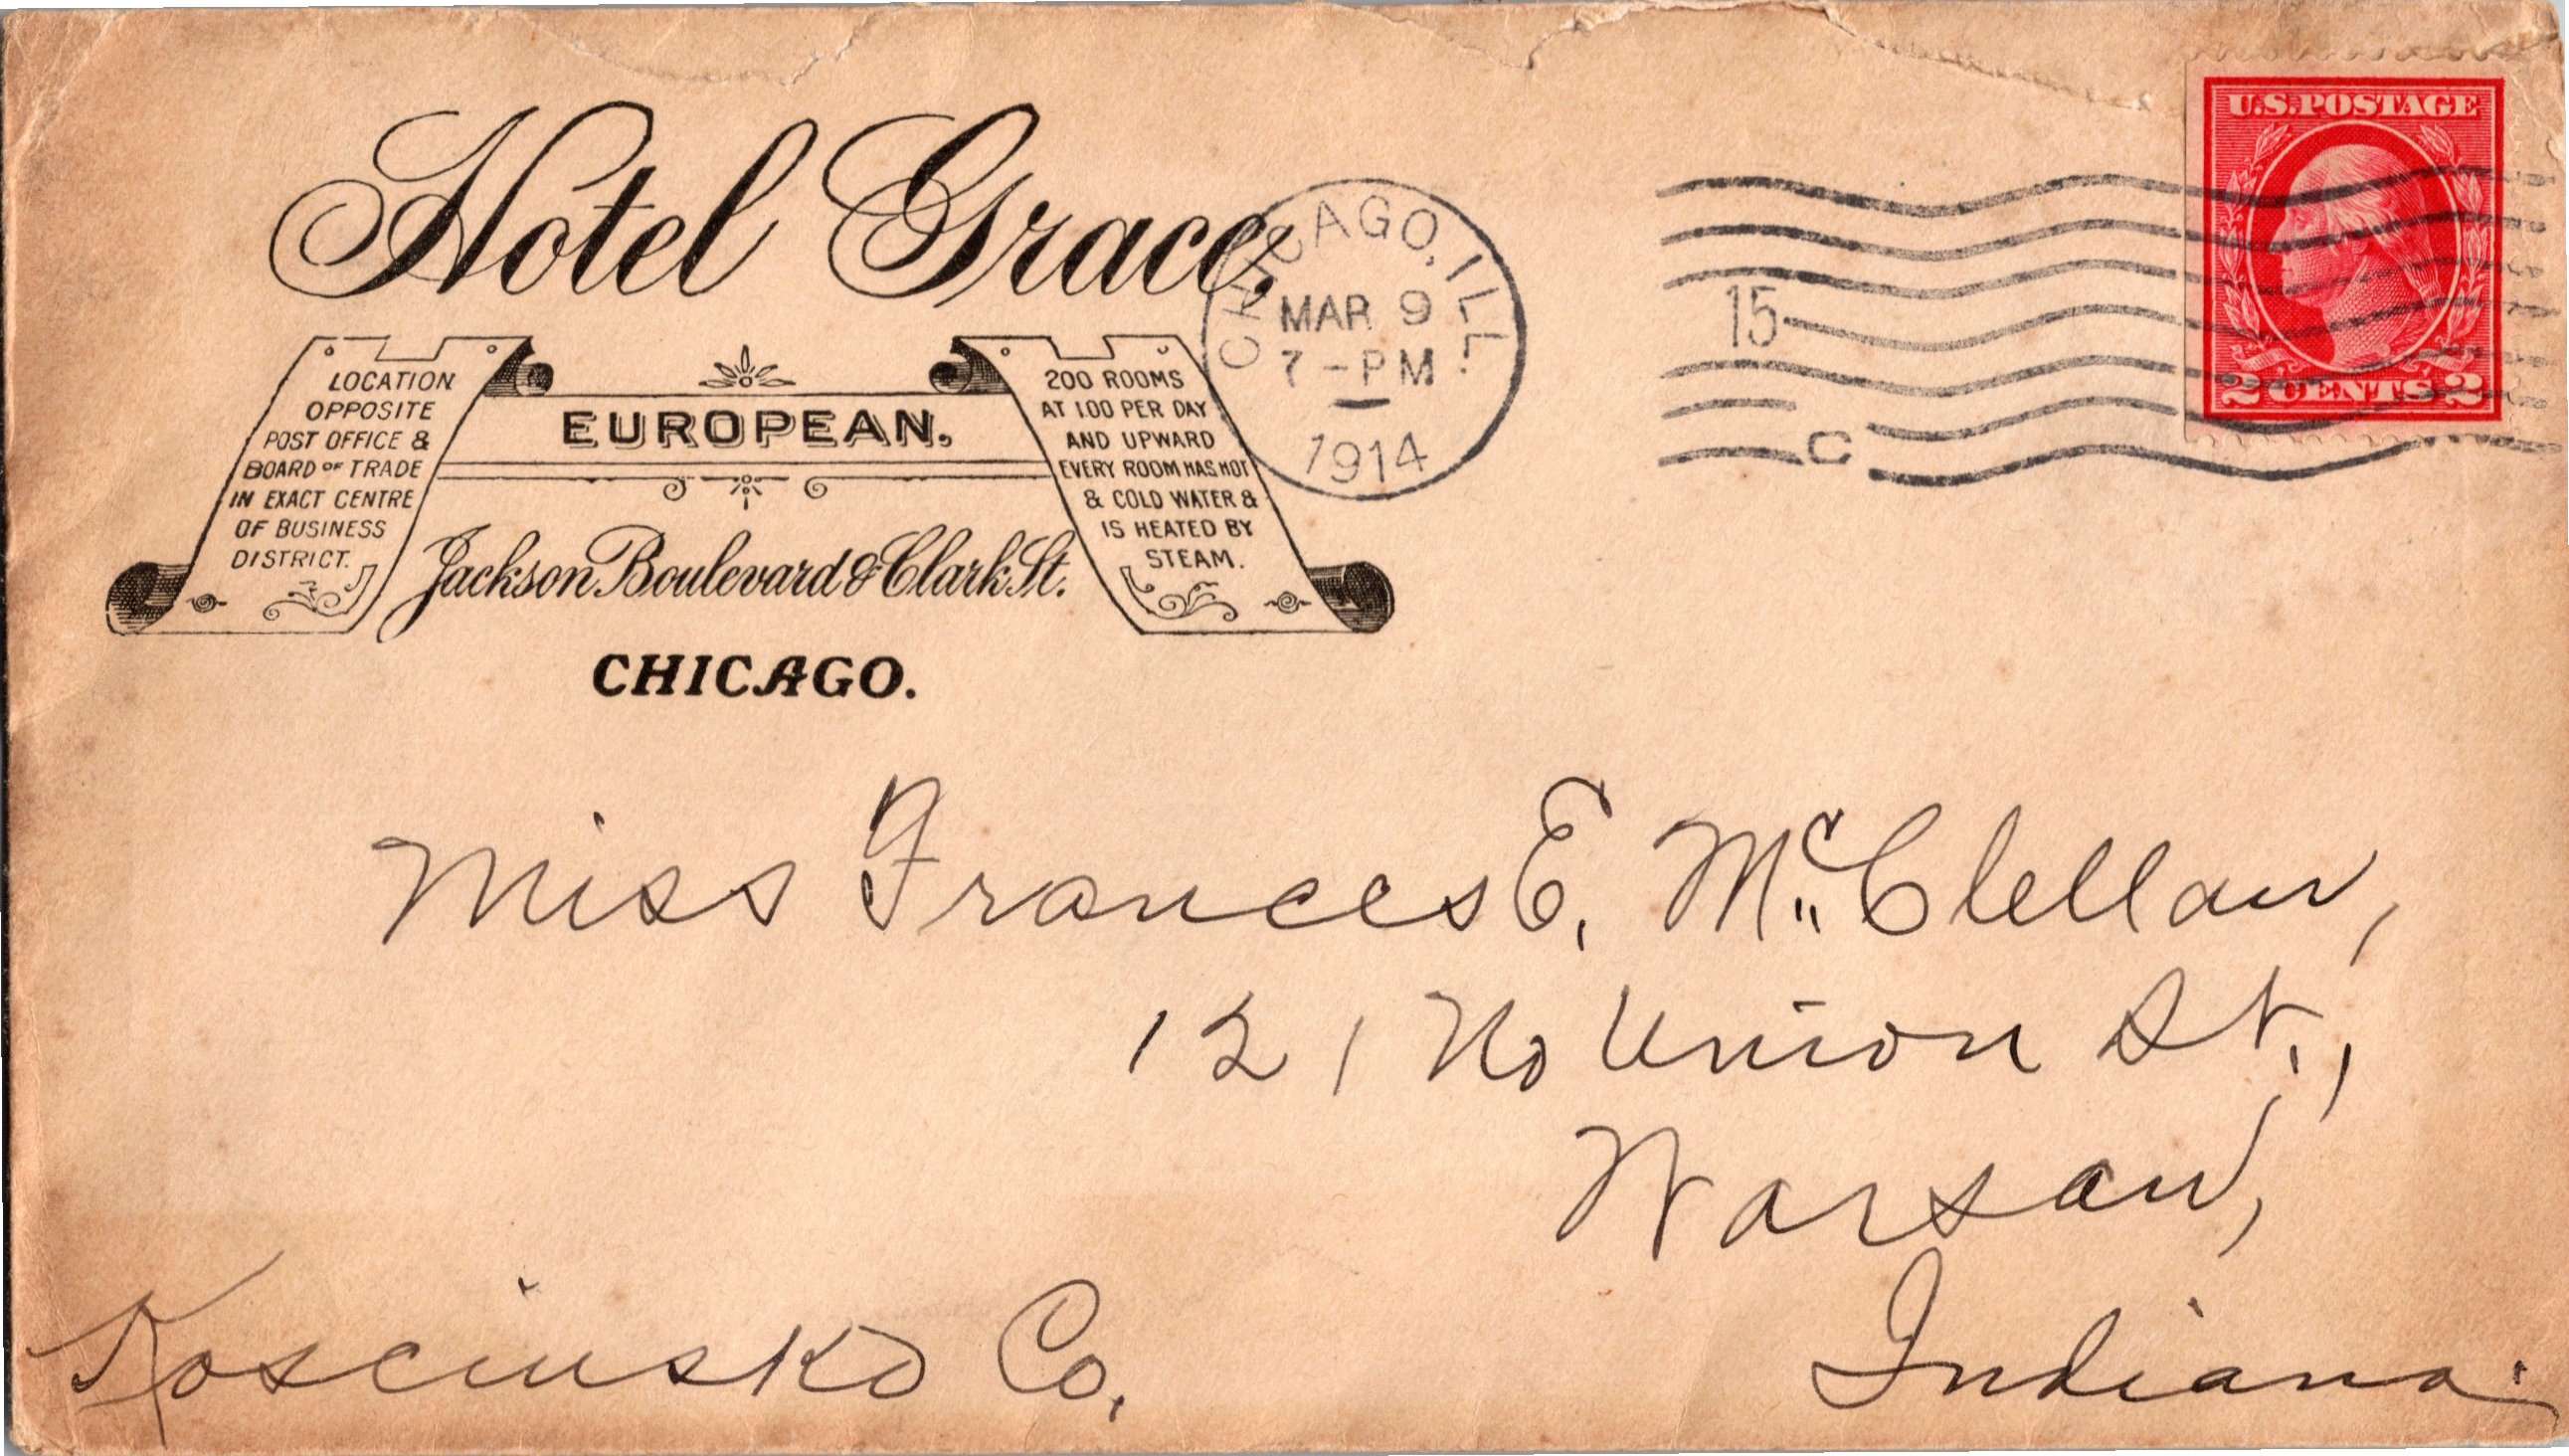 Hotel Grace,
LOCATION
OPPOSITE
POST OFFICE &
BOARD OF TRADE
IN EXACT CENTRE
OF BUSINESS
DISTRICT.
EUROPEAN.
200 ROOMS
AT 1.00 PER DAY
AND UPWARD
EVERY ROOM HAS HOT
& COLD WATER &
IS HEATED BY
STEAM.
Jackson Boulevard & Clark St.
CHICAGO.
CHICAGO, ILL.
MAR 9
7 - PM
1914
15
C
U.S. POSTAGE
2 CENTS 2
Miss Frances E. Mc Clellan,
121 No Union St.,
Warsaw,
Indiana.
Kosciusko Co.